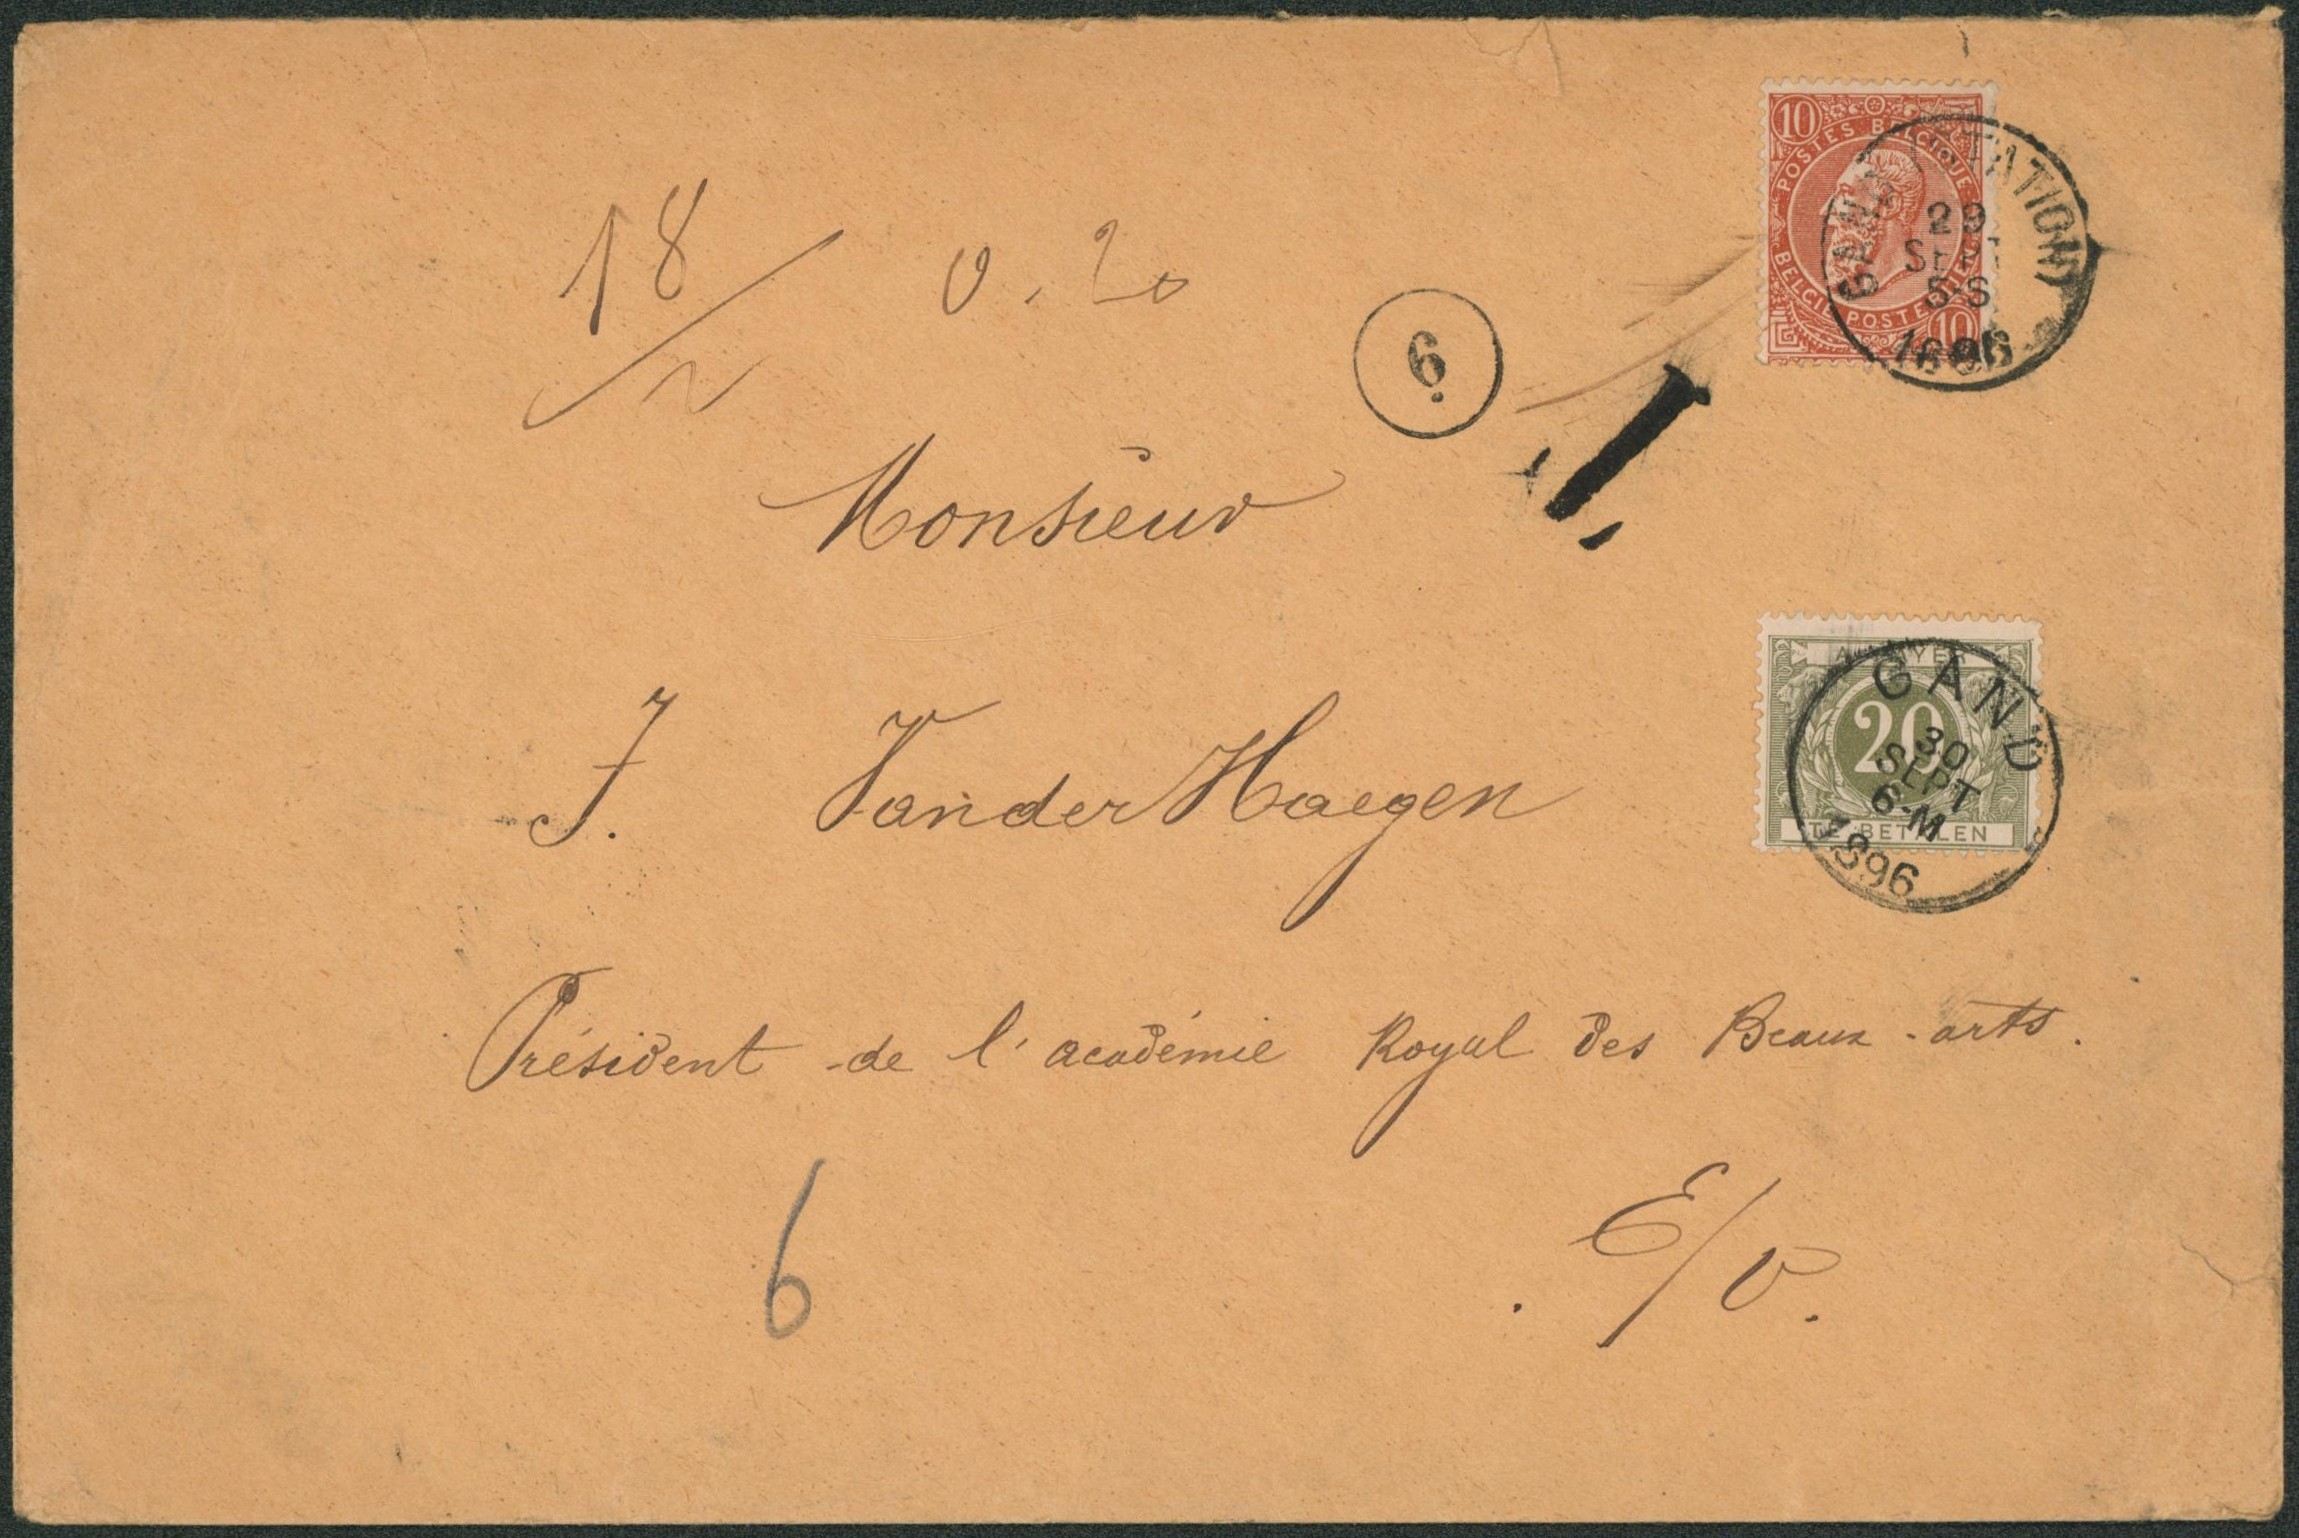 10
POSTES BELGIQUE
BELGIE POSTERIJEN
10
GAND (STATION)
29
SEPT
5-S
1896
18/2
0.20
6
T
Monsieur
A PAYER
20
TE BETALEN
GAND
30
SEPT
6-M
1896
J. VanderHaegen
Président de l'académie Royal des Beaux-arts.
6
E/V.